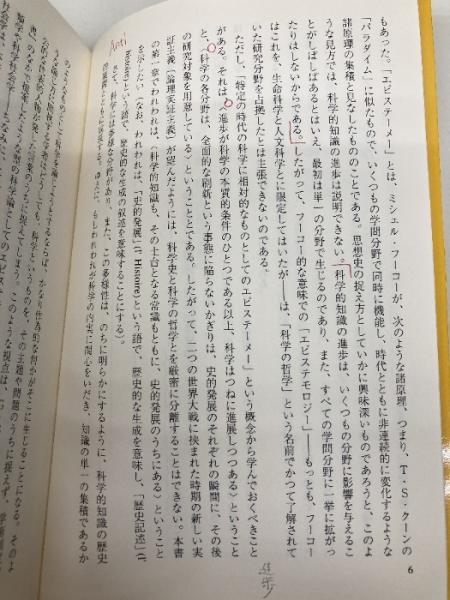 もあった。「エピステーメー」とは、ミシェル・フーコーが、次のような諸原理、つまり、T・S・クーンの
「パラダイム」に似たもので、いくつもの学問分野で同時に機能し、時代とともに非連続的に変化するような
諸原理の集積と見なしたもののことである。思想史の捉え方としていかに興味深いものであろうと、このよ
うな見方では、科学的知識の進歩は説明できない。科学的知識の進歩は、いくつもの分野に影響を与えるこ
とがしばしばあるとはいえ、最初は単一の分野で生じるのであり、また、すべての学問分野に一挙に拡がっ
たりはしないからである。したがって、フーコー的な意味での「エピステモロジー」――もっとも、フーコー
はこれを、生命科学と人文科学とに限定してはいたが――は、「科学の哲学」という名前でかつて了解されて
いた研究分野を占拠したとは主張できないのである。
ただし、「特定の時代の科学に相対的なものとしてのエピステーメー」という概念から学んでおくべきこと
がある。それは、〈進歩が科学の本質的条件のひとつである以上、科学はつねに進展しつつある〉ということ
と、〈科学の各分野は、全面的な刷新という事態に陥らないかぎりは、史的発展のそれぞれの瞬間に、その後
の研究対象を用意している〉ということとである。したがって、二つの世界大戦に挟まれた時期の新しい実
証主義(論理実証主義)が望んだようには、科学史と科学の哲学とを厳密に分離することはできない。本書
の第一章でわれわれは、〈科学的知識も、その土台となる常識もともに、史的発展のうちにある〉ということ
を示したい。(なお、われわれは、「史的発展」(l'Histoire)という語で、歴史的な生成を意味し、「歴史記述」(l'
histoire)という語で、歴史的な生成の叙述を意味することにする)。
さて、科学には多様な分科があり、また、この多様性は、のちに明らかにするように、科学的知識の歴史
6
Anti
進歩